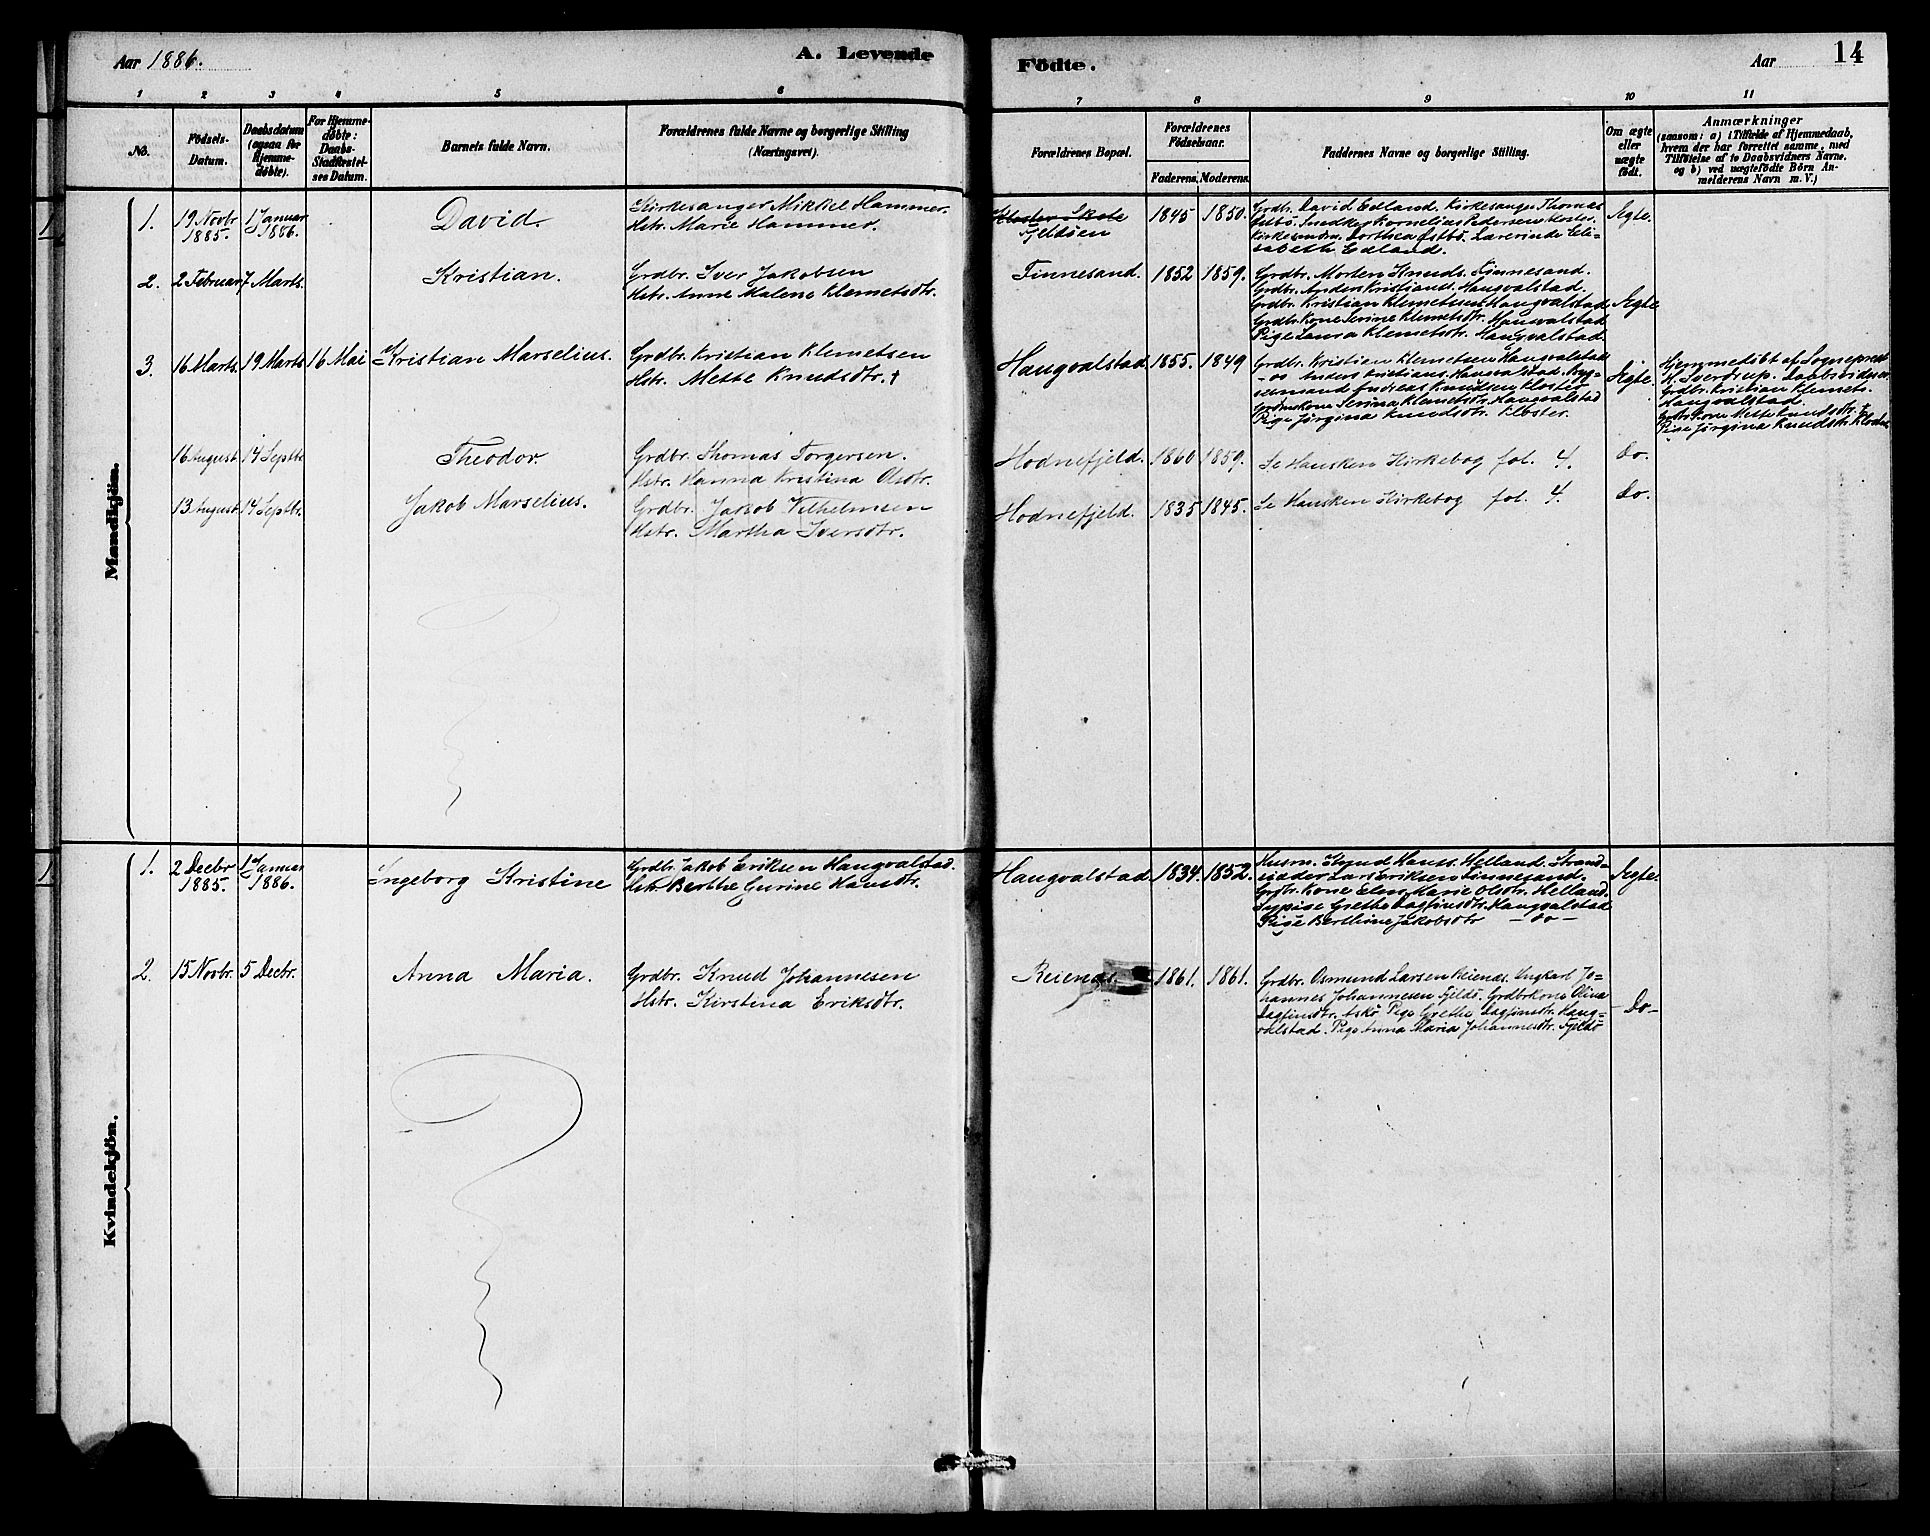 Aar 1886.
A. Levende
Födte.
Aar
14
1 2 3 4 5 6 7 8 9 10 11
No.
Födsels-
Datum.
Daabsdatum
(ogsaa for
Hjemme-
døbte).
For Hjemme-
døbte:
Daabs-
Stadfæstel-
ses Datum.
Barnets fulde Navn.
Forældrenes fulde Navne og borgerlige Stilling
(Næringsvei).
Forældrenes Bopæl.
Forældrenes
Födselsaar.
Faderens. Moderens.
Faddernes Navne og borgerlige Stilling.
Om ægte
eller
uægte
født.
Anmærkninger
(saasom: a) i Tilfælde af Hjemmedaab,
hvem der har forrettet samme, med
Tilföielse af to Daabsvidners Navne,
og b) ved uægtefödte Börn An-
melderens Navn m. V.)
Mandkjön.
1
1. 19 Novbr
1885.
1 Januar
1886.
David.
Kirkesanger Mikkel Hammer.
Hstr. Marie Hammer.
Kloster Skole
Fjeldöen
1845 1850.
Grdbr. David Edland. Kirkesang. Thomas
Østbö. Snedker Kornelius Pedersen Kloster.
Kirkesmdm. Dorthea Østbö. Lærerinde Eli-
sabeth Edland.
Ægte.
2. 2 Februar 7 Marts.
Kristian.
Grdbr. Iver Jakobsen
Hstr. Anne Malene Klemetsdtr.
Finnesand. 1852 1859.
Grdbr. Morten Knuds. Finnesand.
Grdbr. Anders Kristians. Haugvalstad.
Grdbr. Kristian Klemetsen Haugvalstad
Grdbr. Kone Serine Klemetsdtr. Haugvalstad
Pige Laura Klemetsdtr. Haugvalstad.
Ægte
3. 16 Marts. 19 Marts. 16 Mai
Kristian Marselius.
Grdbr. Kristian Klemetsen
Hstr. Mette Knudsdtr. †
Haugvalstad 1855. 1849
Grdbr. Kristian Klemetsen Haugvalstad
- do Anders Kristians. Haugvalstad. Byg-
selmand Andreas Knudsen Kloster
Grdmkone Serina Klemetsdtr. Haugvalstad
Pige Jørgina Knudsdtr. Kloster.
Ægte.
Hjemmedöbt af Sogneprest
H. Sverdrup. Daabsvidner
Grdbr. Kristian Klemets.
Haugvalstad.
Grdbr. Kone Mette Knudsdtr. &
Pige Jørgina Knudsdtr. Kloster
16 August. 14 Septbr.
Theodor.
Grdbr. Thomas Torgersen.
Hstr. Hanna Kristina Olsdtr.
Hodnefjeld. 1860 1859.
Se Hausken Kirkebog fol. 4.
Do.
13 August. 14 Septbr.
Jakob Marselius.
Grdbr. Jakob Vilhelmsen
Hstr. Martha Iversdtr.
Hodnefjeld. 1835 1845.
Se Hausken Kirkebog fol. 4.
Do.
Kvindekjön.
1
1. 2 Decbr
1885.
1 Januar
1886.
Ingeborg Kristine
Grdbr. Jakob Eriksen Haugvalstad.
Hstr. Berthe Gurine Hansdtr.
Haugvalstad 1834. 1852.
Husm. Knud Hanss. Helland. Strand-
sidder Lars Eriksen Finnesand.
Grdbr. Kone Elen Marie Olsdtr. Helland.
Sypige Grethe Dagfinsdtr. Haugvalstad
Pige Berthine Jakobsdtr - do -
Ægte.
2. 15 Novbr. 5 Decbr.
Anna Maria.
Grdbr. Knud Johannesen
Hstr. Kirstina Eriksdtr.
Reienæs 1861. 1861.
Grdbr. Osmund Larsen Reienæs. Ungkarl Jo-
hannes Johannesen Fjeldö. Grdbrkone Olina
Dagfinsdtr. Askö Pige Grethe Dagfinsdtr. Haug-
valstad. Pige Anna Maria Johannesdtr. Fjeldö
- Do -